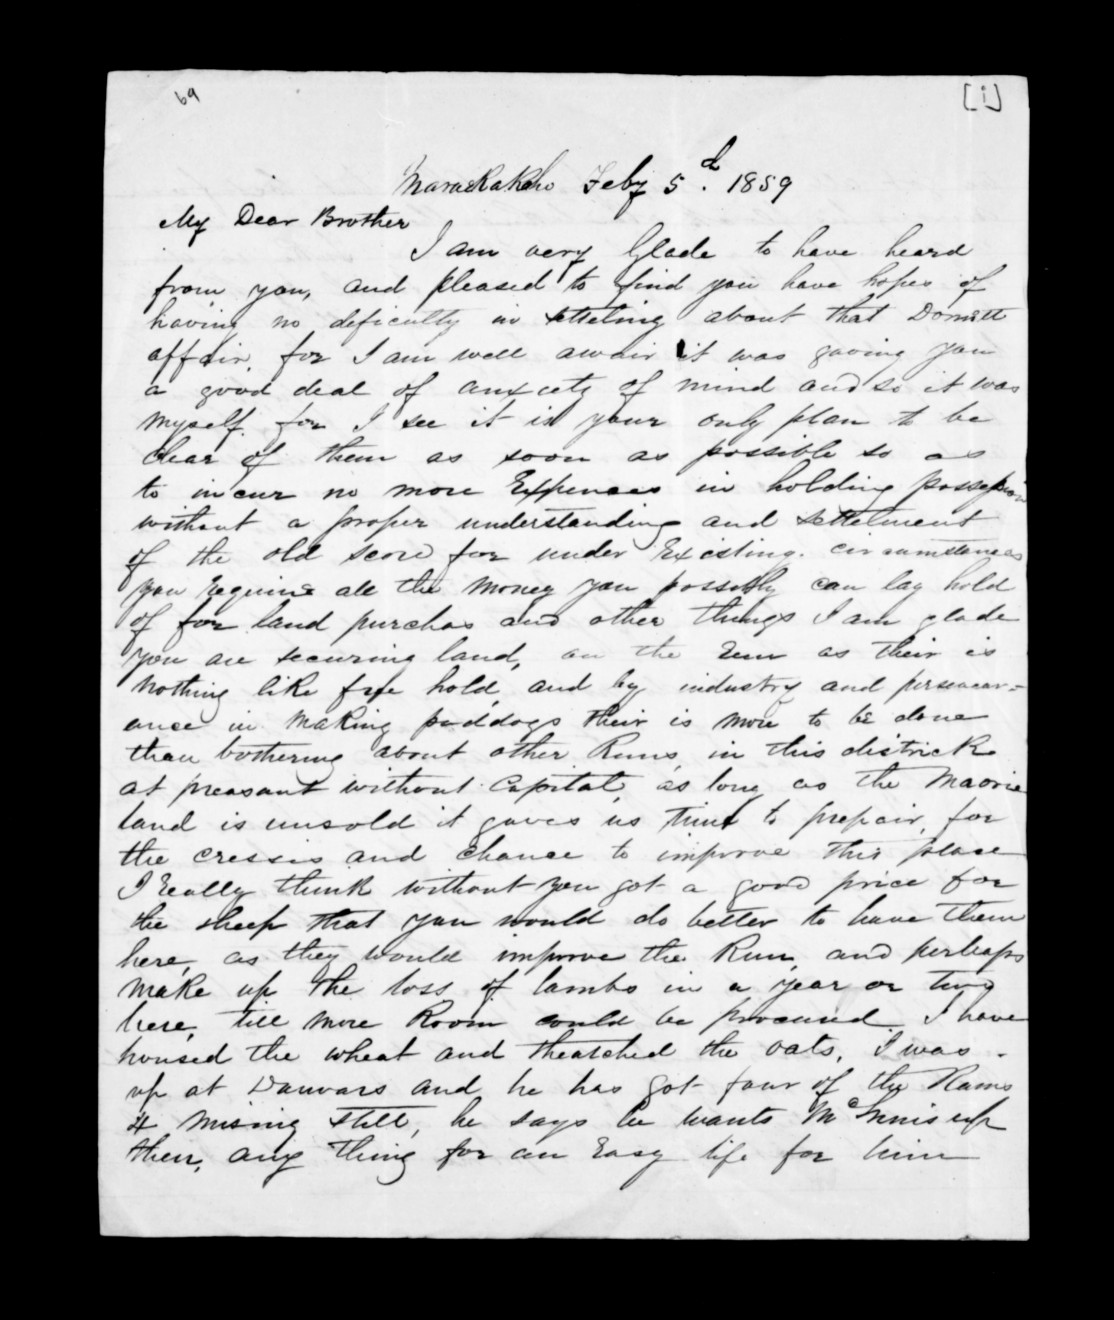 69
[1]
Maraekakaho Feby 5.d 1859
My Dear Brother
I am very Glade to have heard
from you, and pleased to find you have hopes of
having no deficulty in setteling about that Domett
affair, for I am well awair it was gaving you
a good deal of anxiety of mind and so it was
myself. for I see it is your only plan to be
clear of them as soon as possible so as
to incur no more Expences in holding possession
without a proper understanding and settelment
of the old score for under Existing. circumstances
you require all the money you possibly can lay hold
of for land purchas and other things I am glade
you are securing land, on the Run as their is
nothing like free hold, and by industry and persevear-
ance in making paddogs their is more to be done
than bothering about other Runs, in this districk
at preasant without Capital, as long as the Maorie
land is unsold it gaves us time to prepair, for
the cressis and chance to improve this place
I Really think without you got a good price for
the sheep that you would do better to have them
here, as they would improve the Run, and perhaps
make up the loss of lambs in a year or two
here, till more Room could be procured I have
housed the wheat and theatched the oats. I was
up at Danvars and he has got four of the Rams
4 missing still, he says he wants McInnis up
then, any thing for an Easy life for him